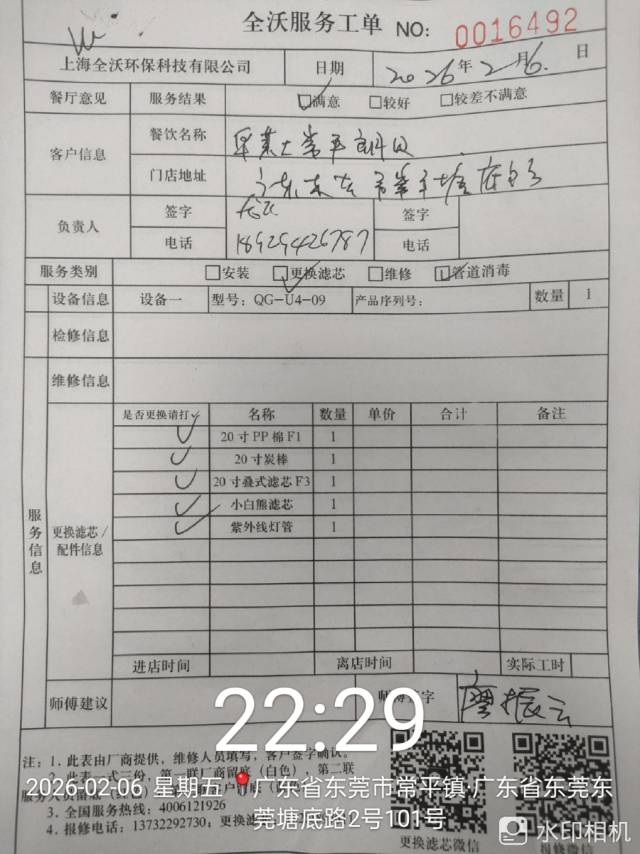 全沃服务工单 NO: 0016492
上海全沃环保科技有限公司 日期 2026年2月6日
餐厅意见 服务结果 ☑满意 □较好 □较差不满意
客户信息 餐饮名称 常平
门店地址 广东东 市常平
负责人 签字 签字
电话 18929426787 电话
服务类别 □安装 ☑更换滤芯 □维修 ☑管道消毒
设备信息 设备一 型号: QG-U4-09 产品序列号: 数量 1
检修信息
维修信息
服务信息
更换滤芯/配件信息
是否更换请打✓ 名称 数量 单价 合计 备注
✓ 20寸PP棉F1 1
✓ 20寸炭棒 1
✓ 20寸叠式滤芯F3 1
✓ 小白熊滤芯 1
✓ 紫外线灯管 1
进店时间 离店时间 实际工时
师傅建议 师傅签字 廖振云
22:29
注: 1. 此表由厂商提供, 维修人员填写, 客户签字确认。
2. 此表一式三份, 第一联厂商留底(白色), 第二联
3. 全国服务热线: 4006121926
4. 报修电话: 13732292730; 更换
更换滤芯微信 报修微信
2026-02-06 星期五 广东省东莞市常平镇·广东省东莞东
莞塘底路2号101号
水印相机